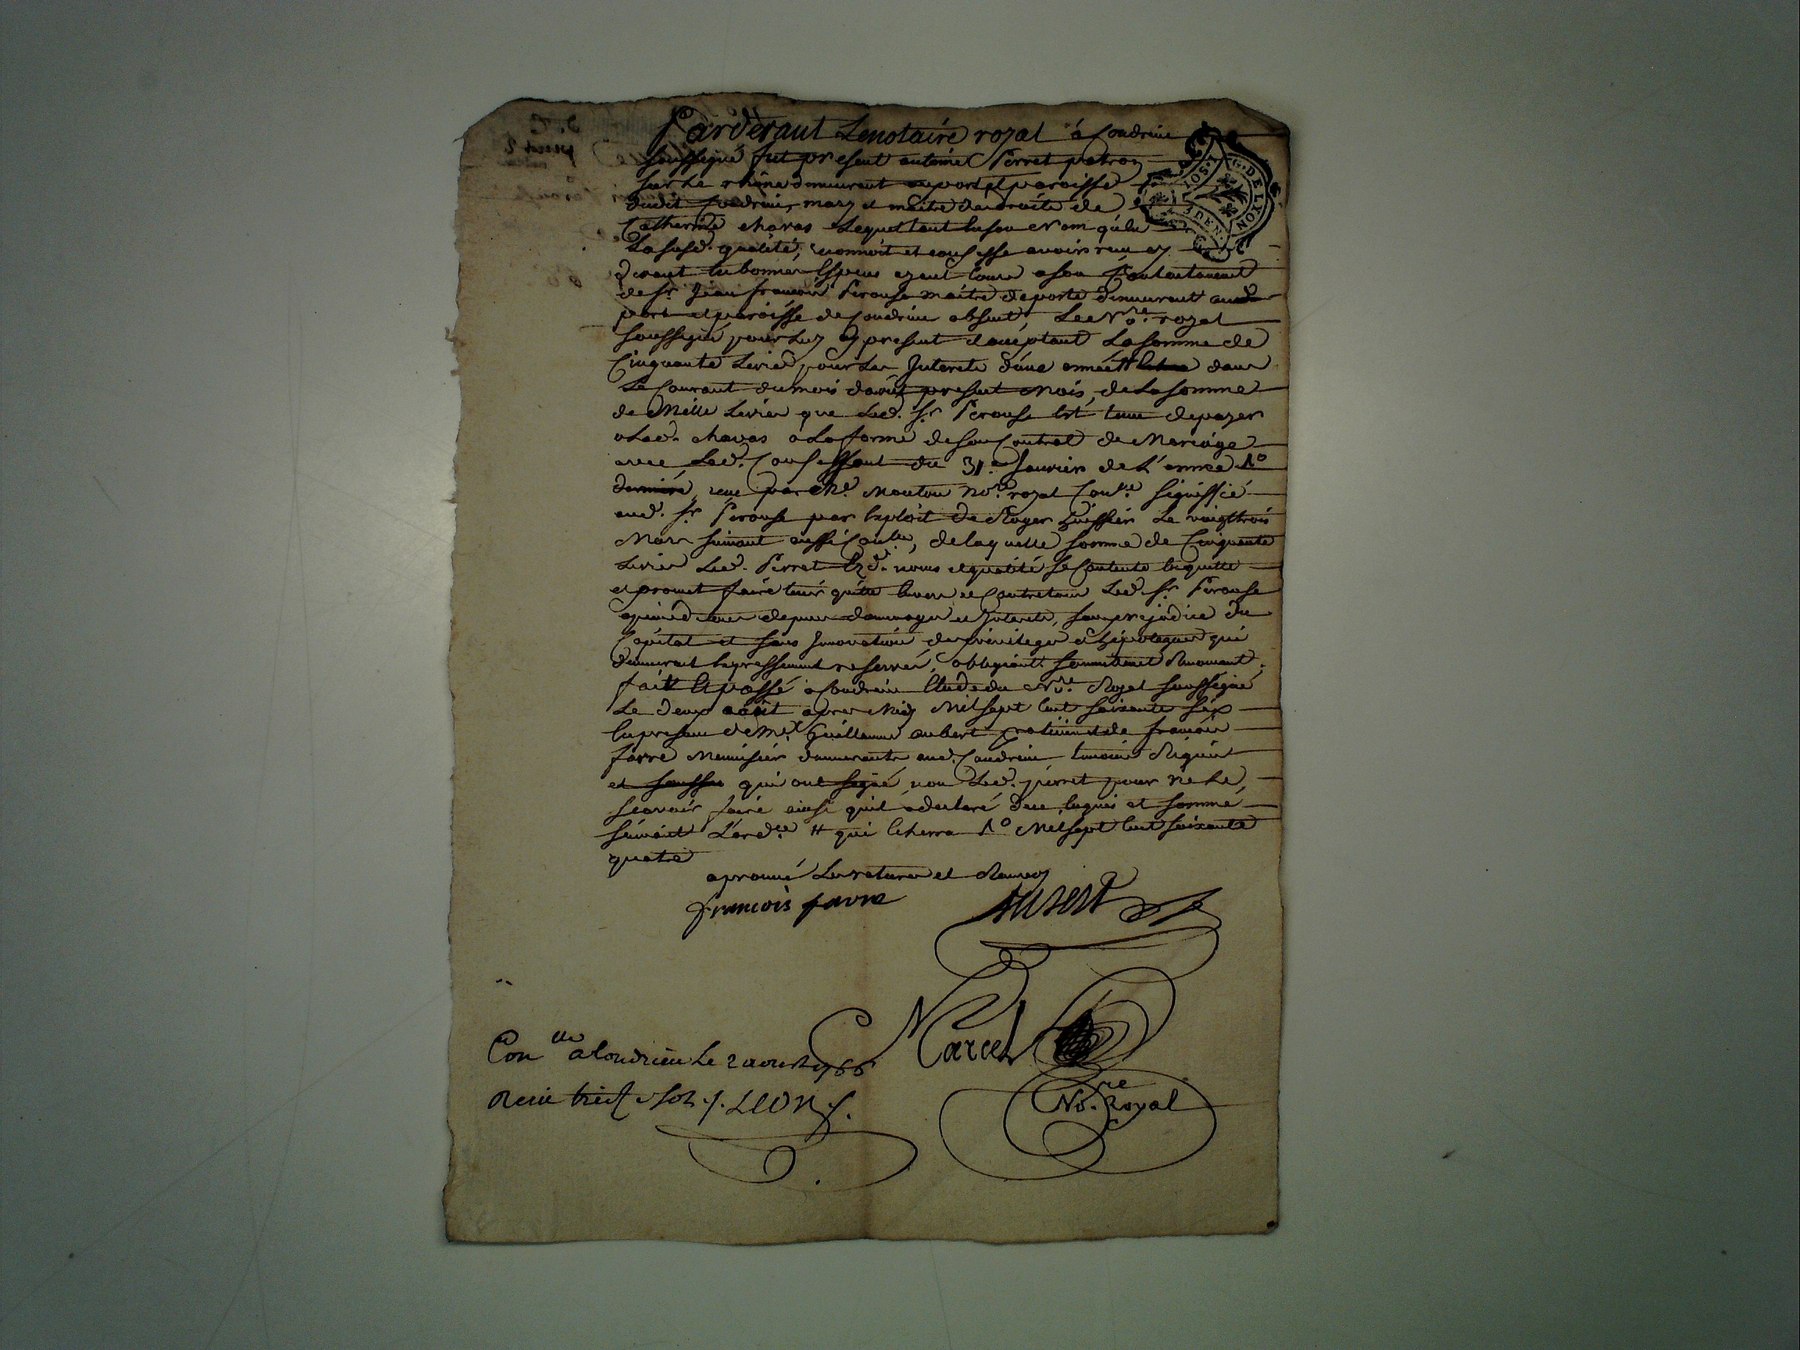 Pardevant Le notaire royal à Condrieu
soussigné fut present antoine Perret patron
sur Le rhône demeurant au port et paroisse
dudit Condrieu, mary et maitre des droits de
Catherine chavas Lequel tant en son Nom qu'en
La susd. qualité, reconnoit et confesse avoir reçu
en bonnes Espèces ayant cours a son Contentement
de sr. Jean françois Perouse maitre de poste demeurant aud.
port et paroisse de Condrieu absent, Le Nore. royal
soussigné pour Luy present et acceptant La somme de
Cinquante Livres pour Les Interets d'une année # dans
Le Courant du mois d'août present Mois, de La somme
de Mille Livres que Led. sr. Perouse Est tenu de payer
a Lad. chavas a La forme de son Contrat de Mariage
avec Led. Confessant du 31e. Janvier de L'année
derniere, reçu par Me. Mouton nore. royal Conlé. signiffié
aud. sr. Perouse par Exploit de Roger huissier Le vingt trois
Mars suivant aussi Conlé, de laquelle somme de Cinquante
Livres Led. Perret Ezd. noms et qualité se Contente En quitte
et promet faire tenir quitte Envers et Contre tous Led. sr. Perouse
a peine de tous depens dommages et Interets, sans prejudice du
Capital et sans Innovation des privileges et hipoteques qui
demeurent Expressement reservés, obligeant soumettant Renonçant
fait Et passé a Condrieu Etude du Nore. Royal soussigné
Le deux août apres Midy Mil sept Cent soixante six
En presence de Mr. Guillaume aubert praticien et de françois
favre Menuisier demeurants aud. Condrieu temoins Requis
et qui ont signé, non Led. perret pour ne Le
sçavoir faire ainsi qu'il a declaré de ce Enquis et sommé
suivant L'ordce # qui Echerra Mil sept Cent soixante
quatre
aprouvé Les ratures et Renvoy
françois favre aubert
Marcel
Conlé a Condrieu Le 2 aoust 1766
Reçu treize sols s. LEON
Nore. Royal
G. DE LYON